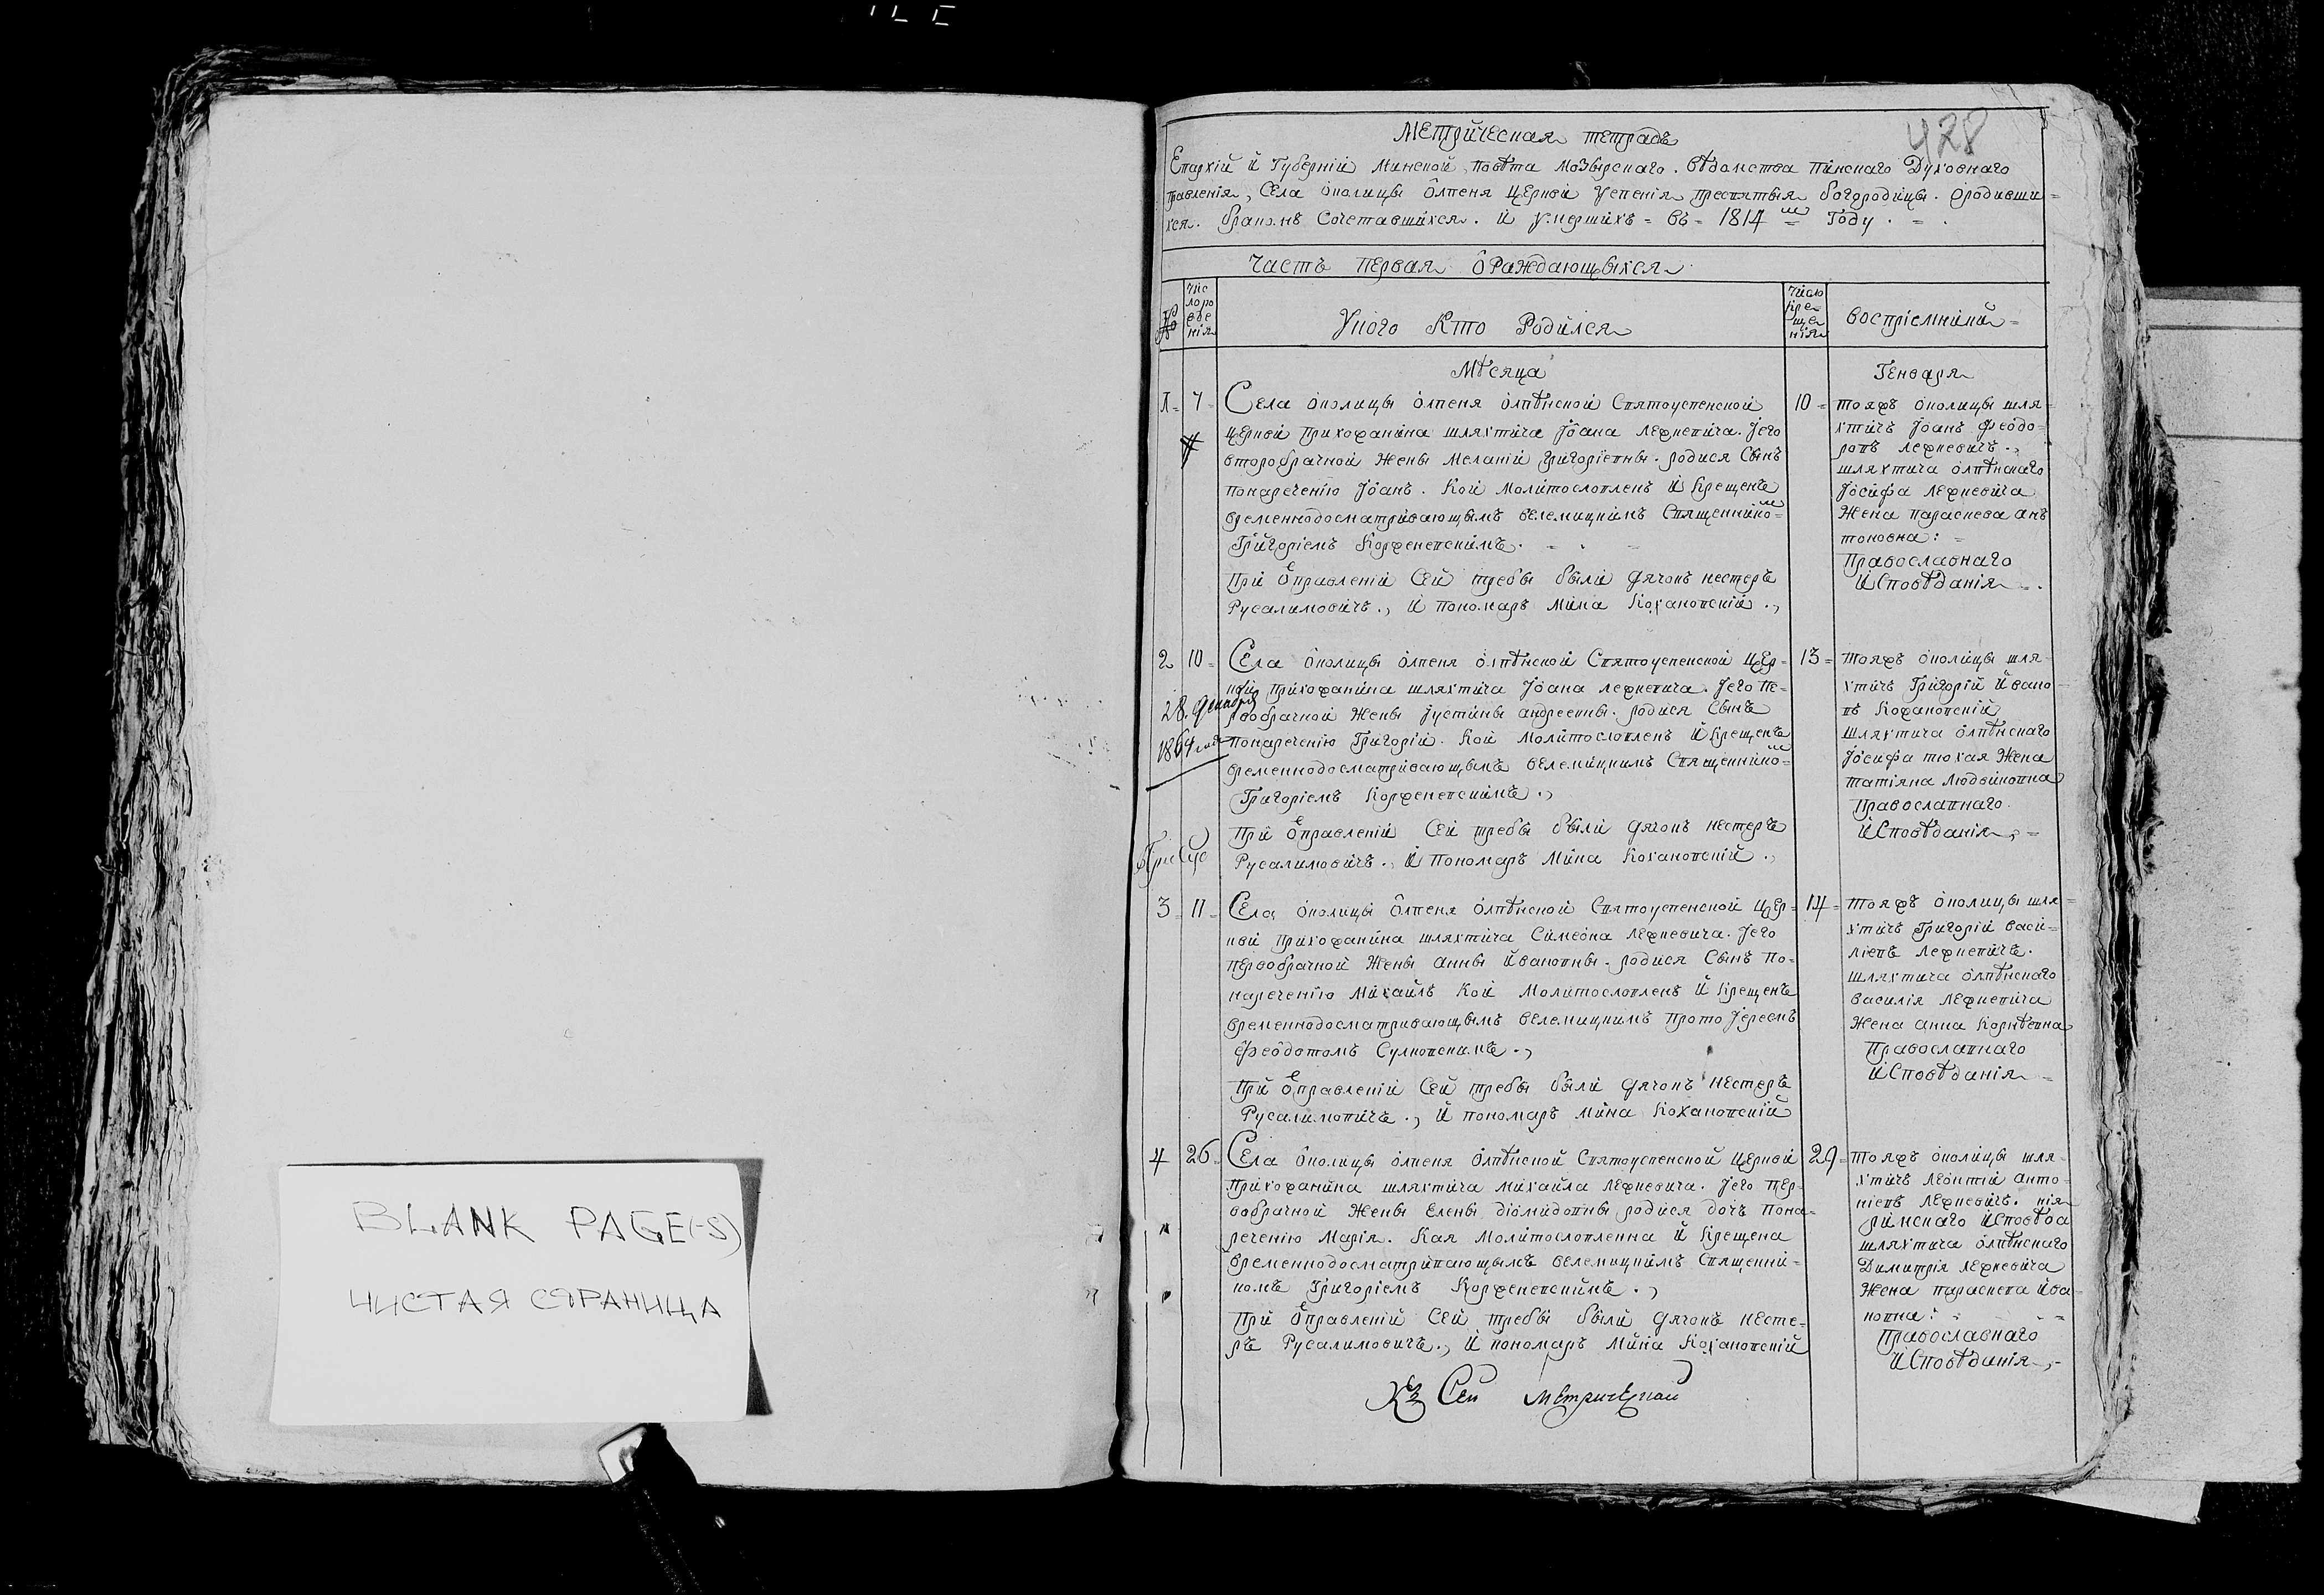 428
Метрическая тетрадь
Епархіи и Губерніи Минской повѣта Мозырского. вѣдомства Пинского Духовного
правленія, Села околицы Олпеня Церкви Успенія пресвятыя богородицы. ородивши=
хся. бракомъ Сочетавшихся. и умершихъ = въ = 1814 м Году
Часть первая ораждающыхся
№
чис
ло ро
жде
нія
Укого Кто Родился
число
кре=
ще
нія
воспріемники=
Мѣсяца
Генваря
1= 7=
Села околицы олпеня олпѣнской Святоуспенской
церкви прихожанина шляхтича Іоана лехневича. Его
второбрачной жены Меланіи григоріевны. родися сынъ
понаречению Іоанъ. кой Молитвословленъ и крещенъ
временнодосматривающымъ велемицкимъ Священнико=м
Григоріемъ Корженевскимъ.
При оправленіи сей требы были дячокъ нестеръ
Русалимовичъ., и пономаръ Мина Кохановскій.,
10=
тояжъ околицы шля
хтичъ Іоанъ феодо=
ровъ лехневичъ.,
шляхтича олпѣнского
Іосифа лехневича
жена параскева ан
тоновна:=
Православного
исповѣданія.
2 10=
Села околицы олпеня олпѣнской Святоуспенской цер=
кви прихожанина шляхтича Іоана лехневича. Его пе=
рвобрачной жены Іустины андреевны. родися сынъ
понаречению Григорій. кой Молитвословленъ и крещенъ
временнодосматривающымъ велемицкимъ Священнико=м
Григоріемъ Корженевскимъ.,
При оправленіи сей требы были дячокъ нестеръ
Русалимовичъ., и пономаръ Мина Кохановскій.,
28. декабря
1864 года
13=
тояжъ околицы шля
хтичъ Григорій ивано
въ Кохановскій
шляхтича олпѣнского
Іосифа тюхая жена
татіяна людвиковна
Православного
исповѣданія,=
3= 11=
Села околицы олпеня олпѣнской Святоуспенской цер=
кви прихожанина шляхтича Симеона лехневича. Его
первобрачной жены анны ивановны. родися сынъ по=
наречению Михаилъ кой Молитвословленъ и крещенъ
временнодосматривающымъ велемицкимъ протоіереемъ
феодотомъ Сулковскимъ.,
При оправленіи сей требы были дячокъ нестеръ
Русалимовичъ., и пономаръ Мина Кохановскій
14=
тояжъ околицы шля=
хтичъ Григорій васи=
ліевъ лехневичъ.
шляхтича олпѣнского
василія лехневича
жена анна корнѣевна
Православного
исповѣданія=
4 26=
Села околицы олпеня олпѣнской Святоуспенской церкви
прихожанина шляхтича михаила лехневича. Его пер=
вобрачной жены елены діомидовны родися дочъ пона=
речению Марія. кая Молитвословленна и крещена
временнодосматривающымъ велемицкимъ Священни=
комъ Григоріемъ Корженевскимъ.,
При оправленіи сей требы были дячокъ несте=
ръ Русалимовичъ., и пономаръ Мина Кохановскій
29=
тояжъ околицы шля=
хтичъ леонтій анто=
ніевъ лехневичъ.
римского исповѣда
нія
шляхтича олпѣнского
Димитрія лехневича
жена параскева ива=
новна:
Православного
исповѣданія,=
Къ Сей метрической
BLANK PAGE(-S)
ЧИСТАЯ СТРАНИЦА